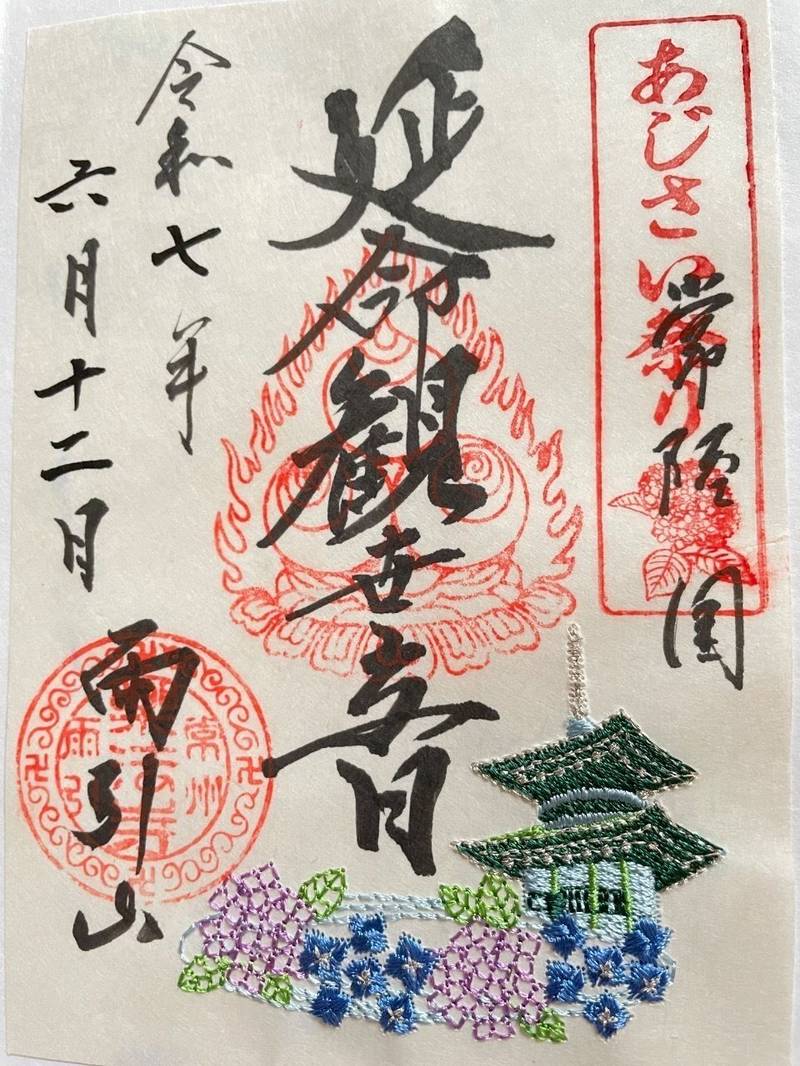 あじさい祭り
常陸国
延命観世音
令和七年
六月十二日
雨引山
常州
雨引